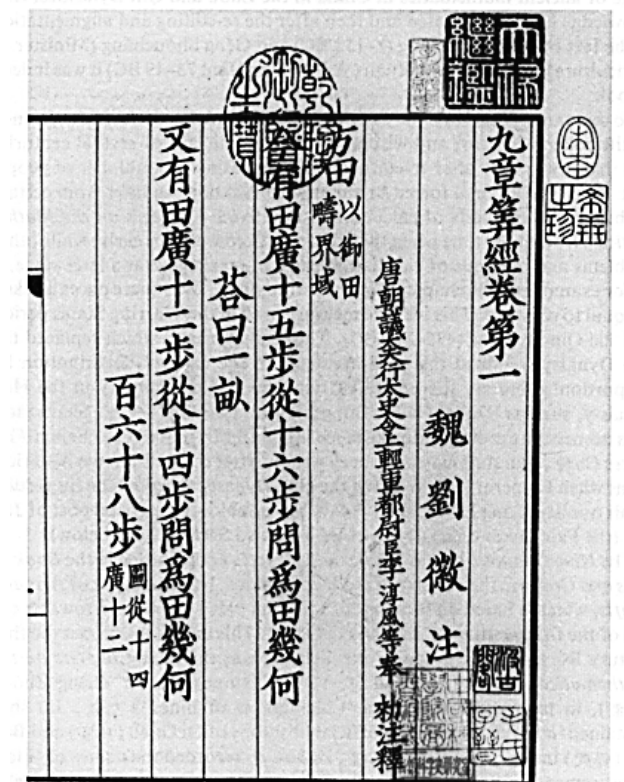 天祿繼鑑
乾隆御覽之寶
宋本
希世之珍
九章筭經卷第一
魏劉徽注
唐朝議大夫行太史令上輕車都尉臣李淳風等奉 勑注釋
方田 以御田
疇界域
今有田廣十五步從十六步問爲田幾何
荅曰一畝
又有田廣十二步從十四步問爲田幾何
百六十八步 圖從十四
廣十二